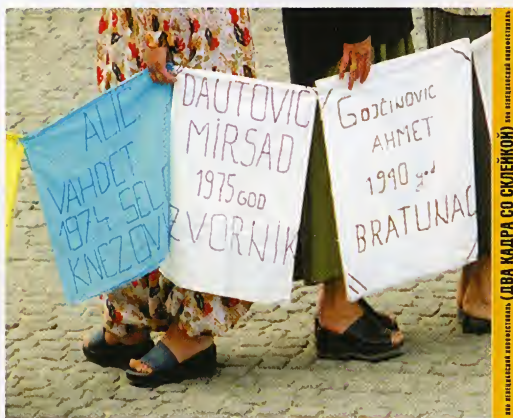 ALIC
VAHDET
1974 SELO
KNEZOVI
DAUTOVIC
MIRSAD
1975 GOD
ZVORNIK
GOJČINOVIC
AHMET
1940 god
BRATUNAC
(ДВА КАДРА СО СКЛЕЙКОЙ)